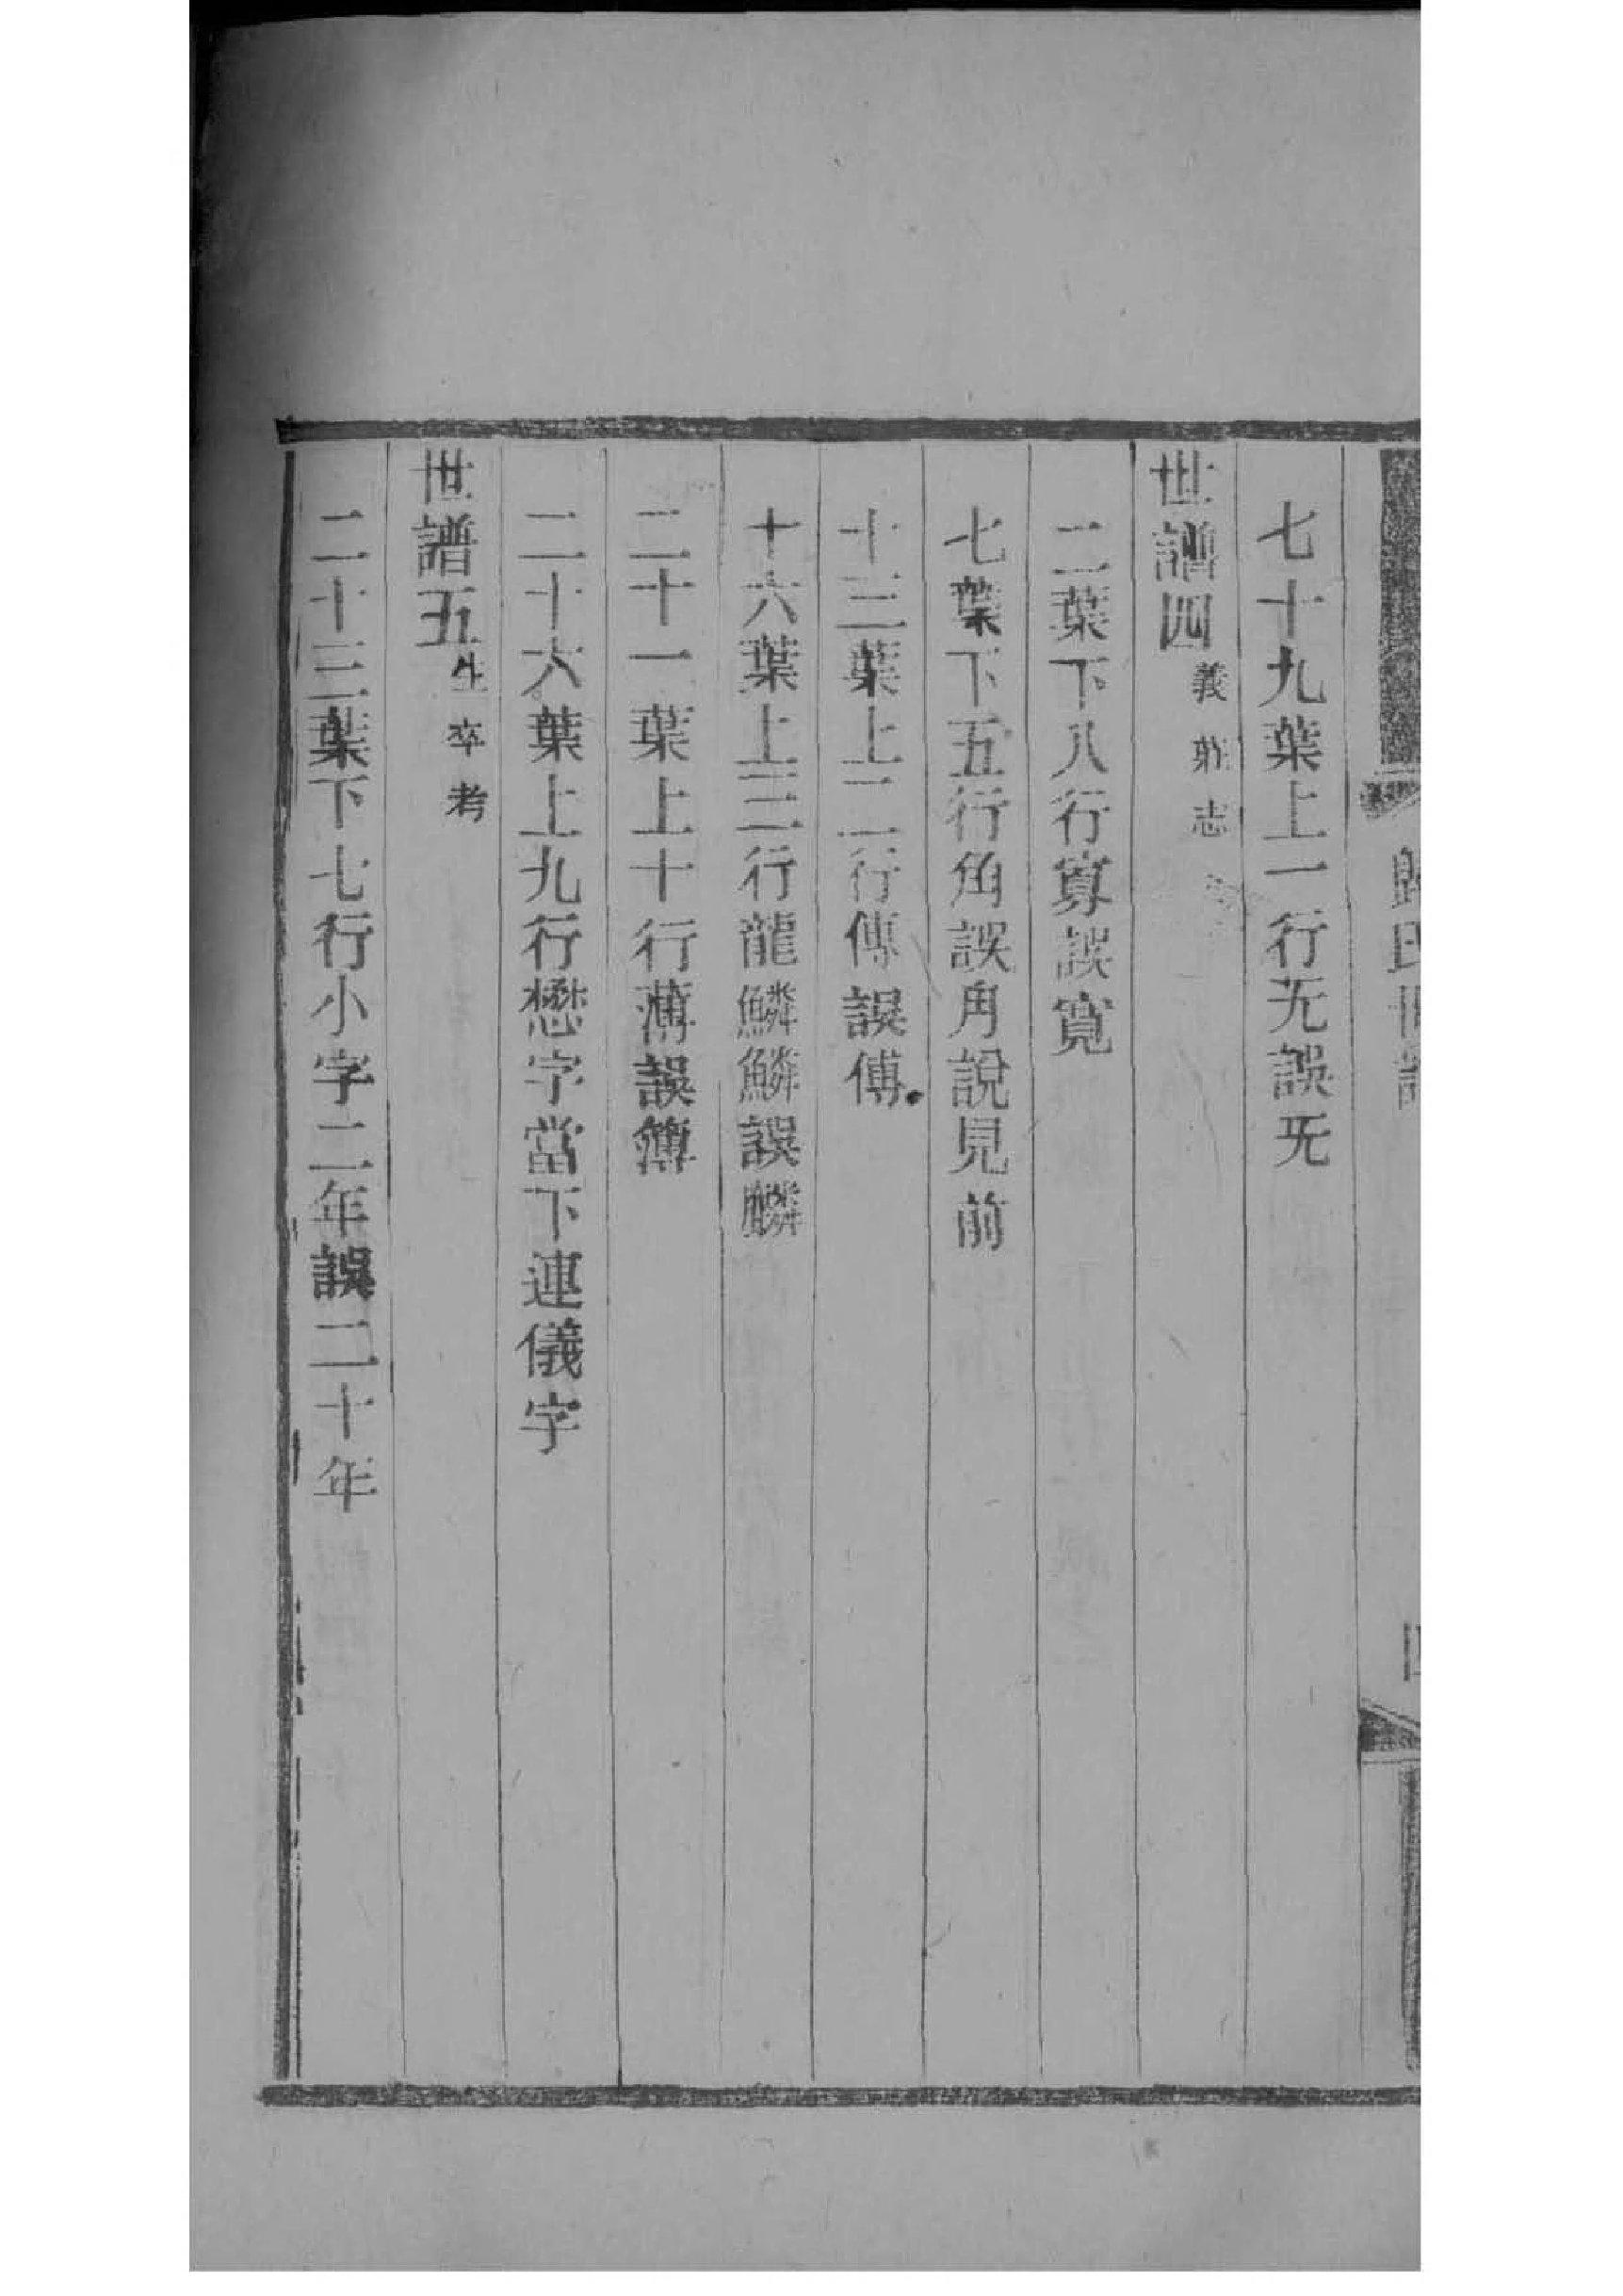 七十九葉上一行无誤旡
世譜四 義莊志
二葉下八行寡誤寬
七葉下五行角誤角說見前
十三葉上二行傳誤傅
十六葉上三行龍鱗鱗誤麟
二十一葉上十行薄誤簿
二十六葉上九行懋字當下連儀字
世譜五 生卒考
二十三葉下七行小字二年誤二十年